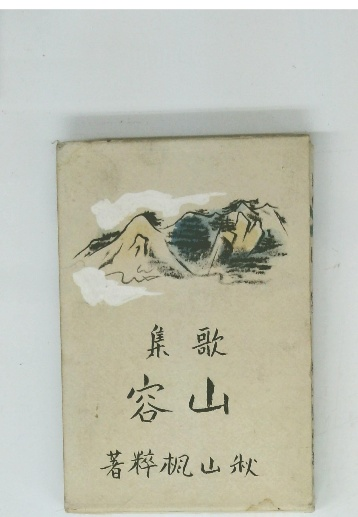 歌集
山容
秋山楓粹著